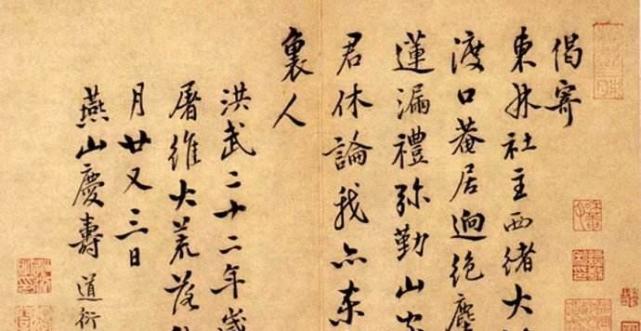 偈寄
東林社主西緒大
渡口菴居迥絶塵
蓮漏禮弥勤山
君休論我亦東
裏人
洪武二十二年歲
屠維大荒落
月廿又三日
燕山慶壽道衍